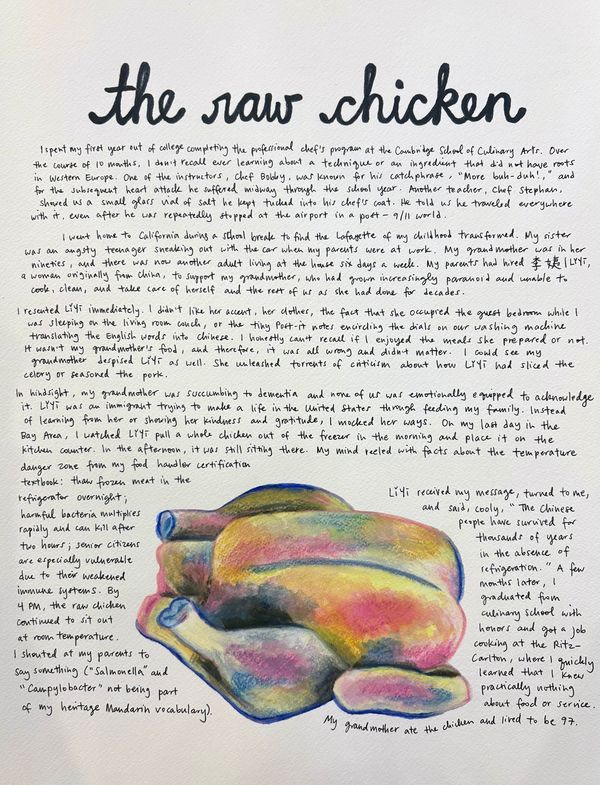 the raw chicken
I spent my first year out of college completing the professional chef's program at the Cambridge School of Culinary Arts. Over
the course of 10 months, I don't recall ever learning about a technique or an ingredient that did not have roots
in Western Europe. One of the instructors, Chef Bobby, was known for his catchphrase, "More buh-duh!," and
for the subsequent heart attack he suffered midway through the school year. Another teacher, Chef Stephan,
showed us a small glass vial of salt he kept tucked into his chef's coat. He told us he traveled everywhere
with it, even after he was repeatedly stopped at the airport in a post-9/11 world.
I went home to California during a school break to find the Lafayette of my childhood transformed. My sister
was an angsty teenager sneaking out with the car when my parents were at work. My grandmother was in her
nineties, and there was now another adult living at the house six days a week. My parents had hired 李婕 | LiYi,
a woman originally from China, to support my grandmother, who had grown increasingly paranoid and unable to
cook, clean, and take care of herself and the rest of us as she had done for decades.
I resented LiYi immediately. I didn't like her accent, her clothes, the fact that she occupied the guest bedroom while I
was sleeping on the living room couch, or the tiny Post-it notes encircling the dials on our washing machine
translating the English words into Chinese. I honestly can't recall if I enjoyed the meals she prepared or not.
It wasn't my grandmother's food, and therefore, it was all wrong and didn't matter. I could see my
grandmother despised LiYi as well. She unleashed torrents of criticism about how LiYi had sliced the
celery or seasoned the pork.
In hindsight, my grandmother was succumbing to dementia and none of us was emotionally equipped to acknowledge
it. LiYi was an immigrant trying to make a life in the United States through feeding my family. Instead
of learning from her or showing her kindness and gratitude, I mocked her ways. On my last day in the
Bay Area, I watched LiYi pull a whole chicken out of the freezer in the morning and place it on the
kitchen counter. In the afternoon, it was still sitting there. My mind reeled with facts about the temperature
danger zone from my food handler certification
textbook: thaw frozen meat in the
refrigerator overnight;
harmful bacteria multiplies
rapidly and can kill after
two hours; senior citizens
are especially vulnerable
due to their weakened
immune systems. By
4 PM, the raw chicken
continued to sit out
at room temperature.
I shouted at my parents to
say something ("Salmonella" and
"Campylobacter" not being part
of my heritage Mandarin vocabulary).
LiYi received my message, turned to me,
and said, cooly, "The Chinese
people have survived for
thousands of years
in the absence of
refrigeration." A few
months later, I
graduated from
culinary school with
honors and got a job
cooking at the Ritz-
Carlton, where I quickly
learned that I knew
practically nothing
about food or service.
My grandmother ate the chicken and lived to be 97.